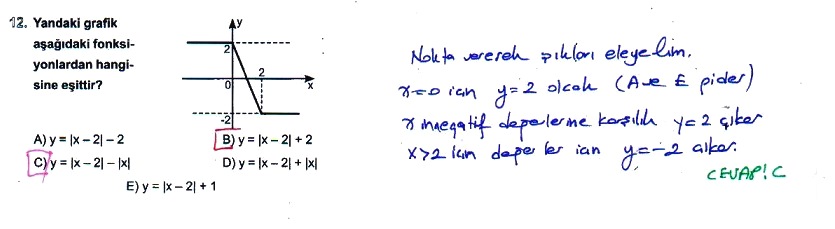 12. Yandaki grafik
aşağıdaki fonksi-
yonlardan hangi-
sine eşittir?
y
2
2
0
x
-2
A) y = |x – 2| – 2
B) y = |x – 2| + 2
C) y = |x – 2| – |x|
D) y = |x – 2| + |x|
E) y = |x – 2| + 1
Nokta vererek şıkları eleyelim.
x=0 için y=2 olcak (A ve E gider)
x in negatif değerlerine karşılık y=2 çıkar
x>2 için değerler için y=-2 çıkar.
CEVAP! C